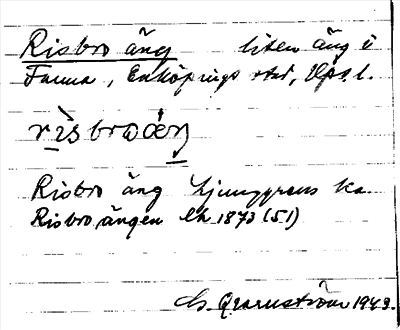 Risbro äng liten äng i
Fanna, Enköpings stad, Upps. l.
rìsbroǽŋ
Risbro äng Ljunggrens ka.
Risbro ängen Ek 1873 (51)
G. Qvarnström 1943.